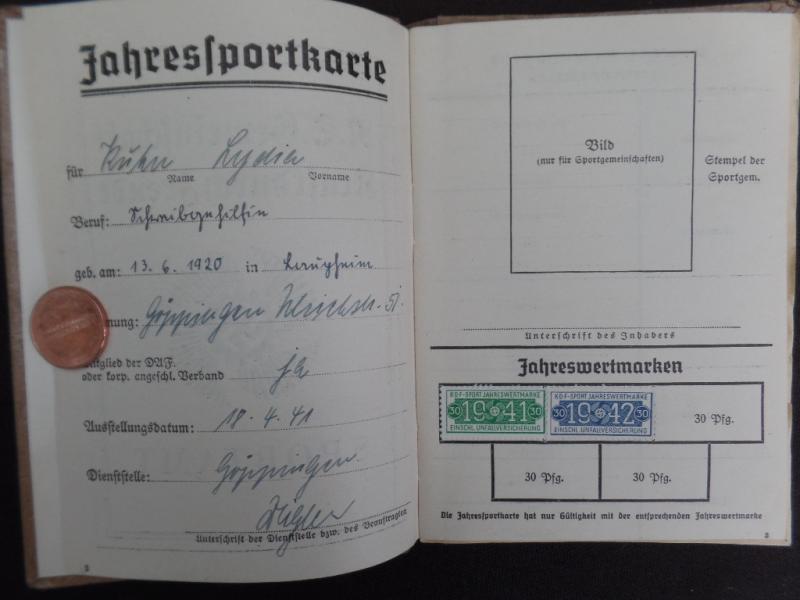 Jahressportkarte
für Kuhn Lydia
Name Vorname
Beruf: Schreibgehilfin
geb. am: 13. 6. 1920 in Laupheim
nung: Göppingen Ulrichstr.
itglied der DAF.
oder korp. angeschl. Verband ja
Ausstellungsdatum: 18. 4. 41
Dienststelle: Göppingen
Unterschrift der Dienststelle bzw. des Beauftragten
2
Bild
(nur für Sportgemeinschaften)
Stempel der
Sportgem.
Unterschrift des Inhabers
Jahreswertmarken
KDF-SPORT JAHRESWERTMARKE
30 1941 30
EINSCHL. UNFALLVERSICHERUNG
KDF-SPORT JAHRESWERTMARKE
30 1942 30
EINSCHL. UNFALLVERSICHERUNG
30 Pfg.
30 Pfg.
30 Pfg.
Die Jahressportkarte hat nur Gültigkeit mit der entsprechenden Jahreswertmarke
3